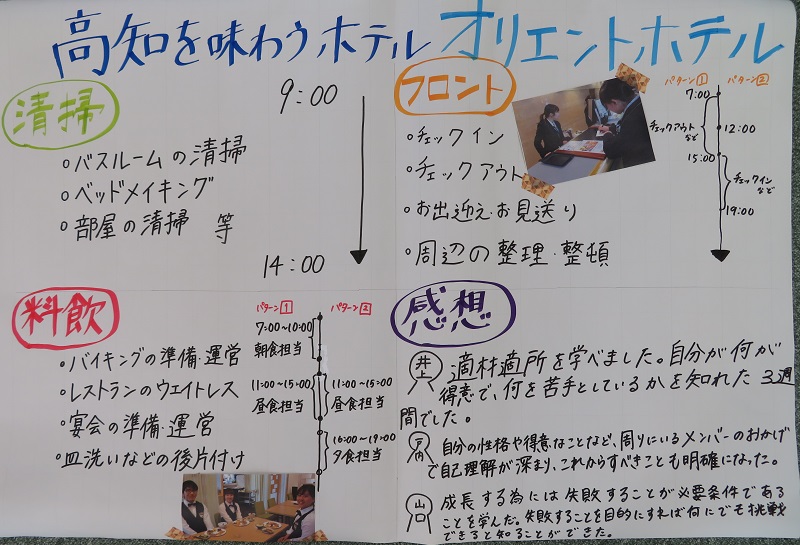 高知を味わうホテル オリエントホテル
清掃
9:00
・バスルームの清掃
・ベッドメイキング
・部屋の清掃 等
14:00
フロント
・チェックイン
・チェックアウト
・お出迎え・お見送り
・周辺の整理・整頓
パターン1 パターン2
7:00
チェックアウト
など
12:00
15:00
チェックイン
など
19:00
料飲
・バイキングの準備・運営
・レストランのウエイトレス
・宴会の準備・運営
・皿洗いなどの後片付け
パターン1 パターン2
7:00~10:00
朝食担当
11:00~15:00 11:00~15:00
昼食担当 昼食担当
16:00~19:00
夕食担当
感想
井上 適材適所を学べました。自分が何が
得意で、何を苦手としているかを知れた3週
間でした。
自分の性格や得意なことなど、周りにいるメンバーのおかげ
で自己理解が深まり、これからすべきことも明確になった。
山口 成長する為には失敗することが必要条件である
ことを学んだ。失敗することを目的にすれば何にでも挑戦
できると知ることができた。